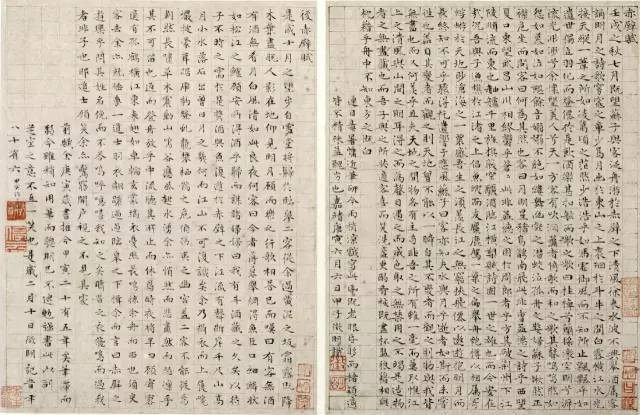 赤壁賦
壬戌之秋七月既望蘇子與客泛舟遊於赤壁之下清風徐來水波不興舉酒屬客
誦明月之詩歌窈窕之章少焉月出於東山之上裴回於斗牛之間白露橫江水光
接天縱一葦之所如凌萬頃之茫然浩浩乎如馮虛御風而不知所止飄飄乎如
遺世獨立羽化而登僊於是飲酒樂甚扣舷而歌之歌曰桂棹兮蘭槳擊空明兮泝
流光渺渺兮余懷望美人兮天一方客有吹洞簫者倚歌而和之其聲嗚嗚然如
怨如慕如泣如訴餘音嫋嫋不絕如縷舞幽壑之潛蛟泣孤舟之嫠婦蘇子愀然正
襟危坐而問客曰何為其然也客曰月明星稀烏鵲南飛此非曹孟德之詩乎西望
夏口東望武昌山川相繆鬱乎蒼蒼此非孟德之困於周郎者乎方其破荊州下江
陵順流而東也舳艫千里旌旗蔽空釃酒臨江橫槊賦詩固一世之雄也而今安在
哉況吾與子漁樵於江渚之上侶魚蝦而友麋鹿駕一葉之扁舟舉匏樽以相屬寄
蜉蝣於天地渺滄海之一粟哀吾生之須臾羨長江之無窮挾飛仙以遨遊抱明月而
長終知不可乎驟得託遺響於悲風蘇子曰客亦知夫水與月乎逝者如斯而未嘗
往也盈虛者如彼而卒莫消長也蓋將自其變者而觀之則天地曾不能以一瞬自其不變者而觀之則物與我皆
無盡也而又何羨乎且夫天地之間物各有主苟非吾之所有雖一毫而莫取惟江
上之清風與山間之明月耳得之而為聲目遇之而成色取之無禁用之不竭是造物
者之無盡藏也而吾與子之所共食客喜而笑洗盞更酌肴核既盡杯盤狼藉相與
枕藉乎舟中不知東方之既白
連日毒暑
嘉靖庚寅六月六日甲子徵明識
後赤壁賦
是歲十月之望步自雪堂將歸於臨皋二客從余過黃泥之坂霜露既降
木葉盡脫人影在地仰見明月顧而樂之行歌相答已而嘆曰有客無酒
有酒無肴月白風清如此良夜何客曰今者薄暮舉網得魚巨口細鱗狀
如松江之鱸顧安所得酒乎歸而謀諸婦婦曰我有斗酒藏之久矣以待
子不時之需於是攜酒與魚復游於赤壁之下江流有聲斷岸千尺山高
月小水落石出曾日月之幾何而江山不可復識矣余乃攝衣而上履巉
巖披蒙茸踞虎豹登虬龍攀棲鶻之危巢俯馮夷之幽宮蓋二客不能從焉
劃然長嘯草木震動山鳴谷應風起水湧余亦悄然而悲肅然而恐凜乎
其不可留也返而登舟放乎中流聽其所止而休焉時夜將半四顧寂寥
適有孤鶴橫江東來翅如車輪玄裳縞衣戛然長鳴掠余舟而西也須臾
客去余亦就睡夢一道士羽衣翩躚過臨皋之下揖余而言曰赤壁之
遊樂乎問其姓名俛而不答嗚呼噫嘻我知之矣疇昔之夜飛鳴而過我
者非子也耶道士顧笑余亦驚寤開戶視之不見其處
前賦余庚寅歲書抵今甲寅二十有五年矣筆滯而
一笑也是歲二月十日徵明記時年
八十有六